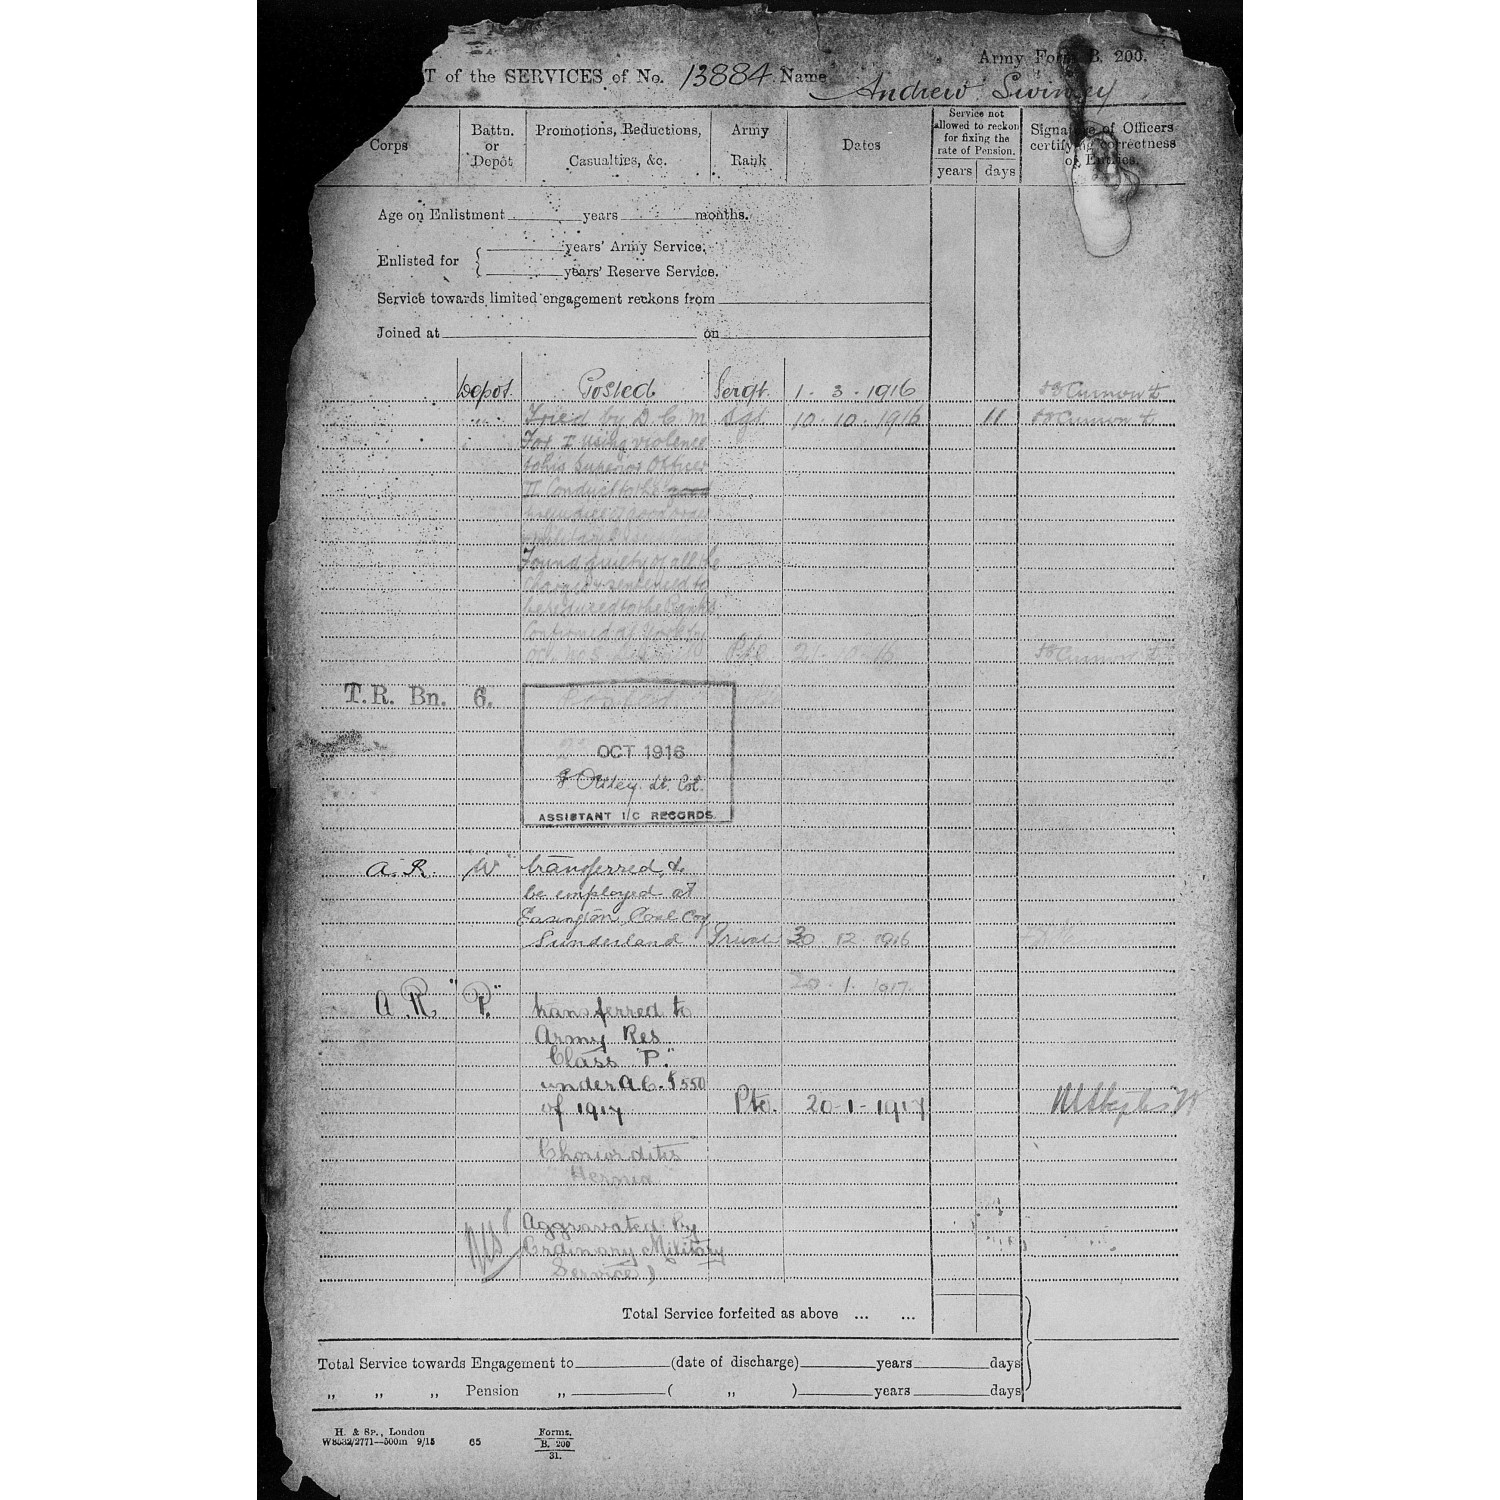 Army Form B. 200.
T of the SERVICES of No. 13884 Name Andrew Swinney
Corps
Battn. or Depôt
Promotions, Reductions, Casualties, &c.
Army Rank
Dates
Service not allowed to reckon for fixing the rate of Pension.
years days
Signature of Officers certifying correctness of Entries.
Age on Enlistment years months.
Enlisted for
years' Army Service,
years' Reserve Service.
Service towards limited engagement reckons from
Joined at on
Depot Posted Sergt. 1 - 3 - 1916
" Tried by D. C. M Sgt 10 - 10 - 1916 11
For I using violence
to his Superior Officer
II Conduct to the good
prejudice of good order
Found guilty of all the
Charges & sentenced to
be reduced to the Ranks
Confirmed at York by
Pte 21 - 10 - 16
T.R. Bn. 6. Posted
OCT 1916
Ottley. Lt. Col.
ASSISTANT I/C RECORDS
A. R. "W" transferred, to
be employed at
Easington Coal Coy
Sunderland Private 30 - 12 - 1916
20 - 1 - 1917.
A. R. "P." transferred to
Army Res
Class "P."
under A.C.I 550
of 1917 Pte. 20 - 1 - 1917
Hernia
Aggravated By
Ordinary Military
Service)
Total Service forfeited as above ... ...
Total Service towards Engagement to (date of discharge) years days
" " " Pension " ( " ) years days
H. & Sp., London
W8532/2771—500m 9/15 65
Forms.
B. 200
31.